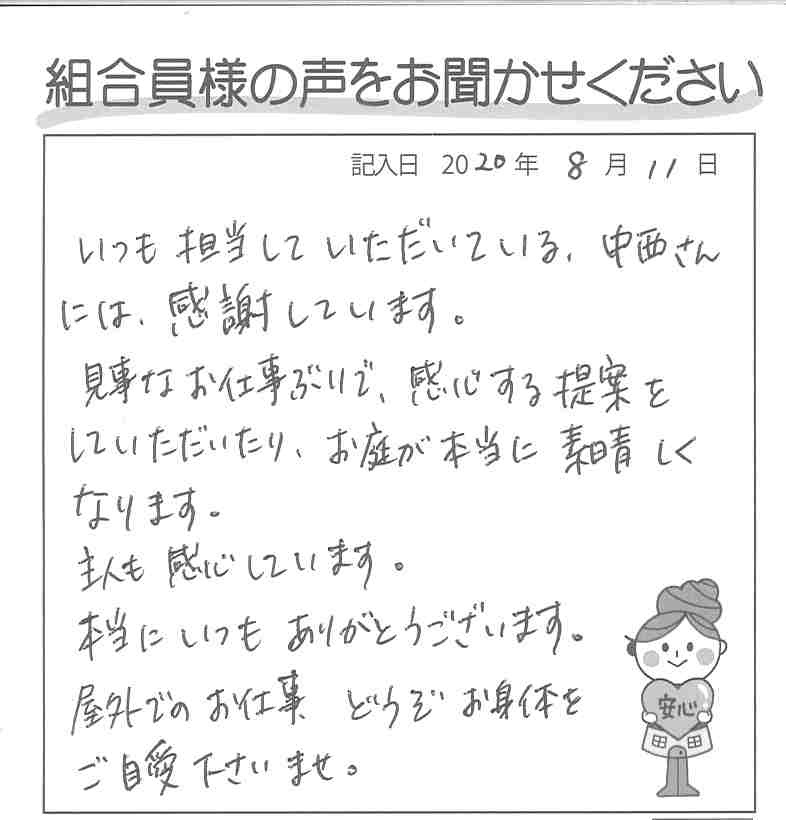 組合員様の声をお聞かせください
記入日 2020年 8月 11日
いつも 担当して いただいている、中西さん
には、感謝しています。
見事なお仕事ぶりで、感心する提案を
していただいたり、お庭が本当に 素晴しく
なります。
主人も感心しています。
本当に いつも ありがとうございます。
屋外でのお仕事 どうぞ お身体を
ご自愛下さいませ。
安心